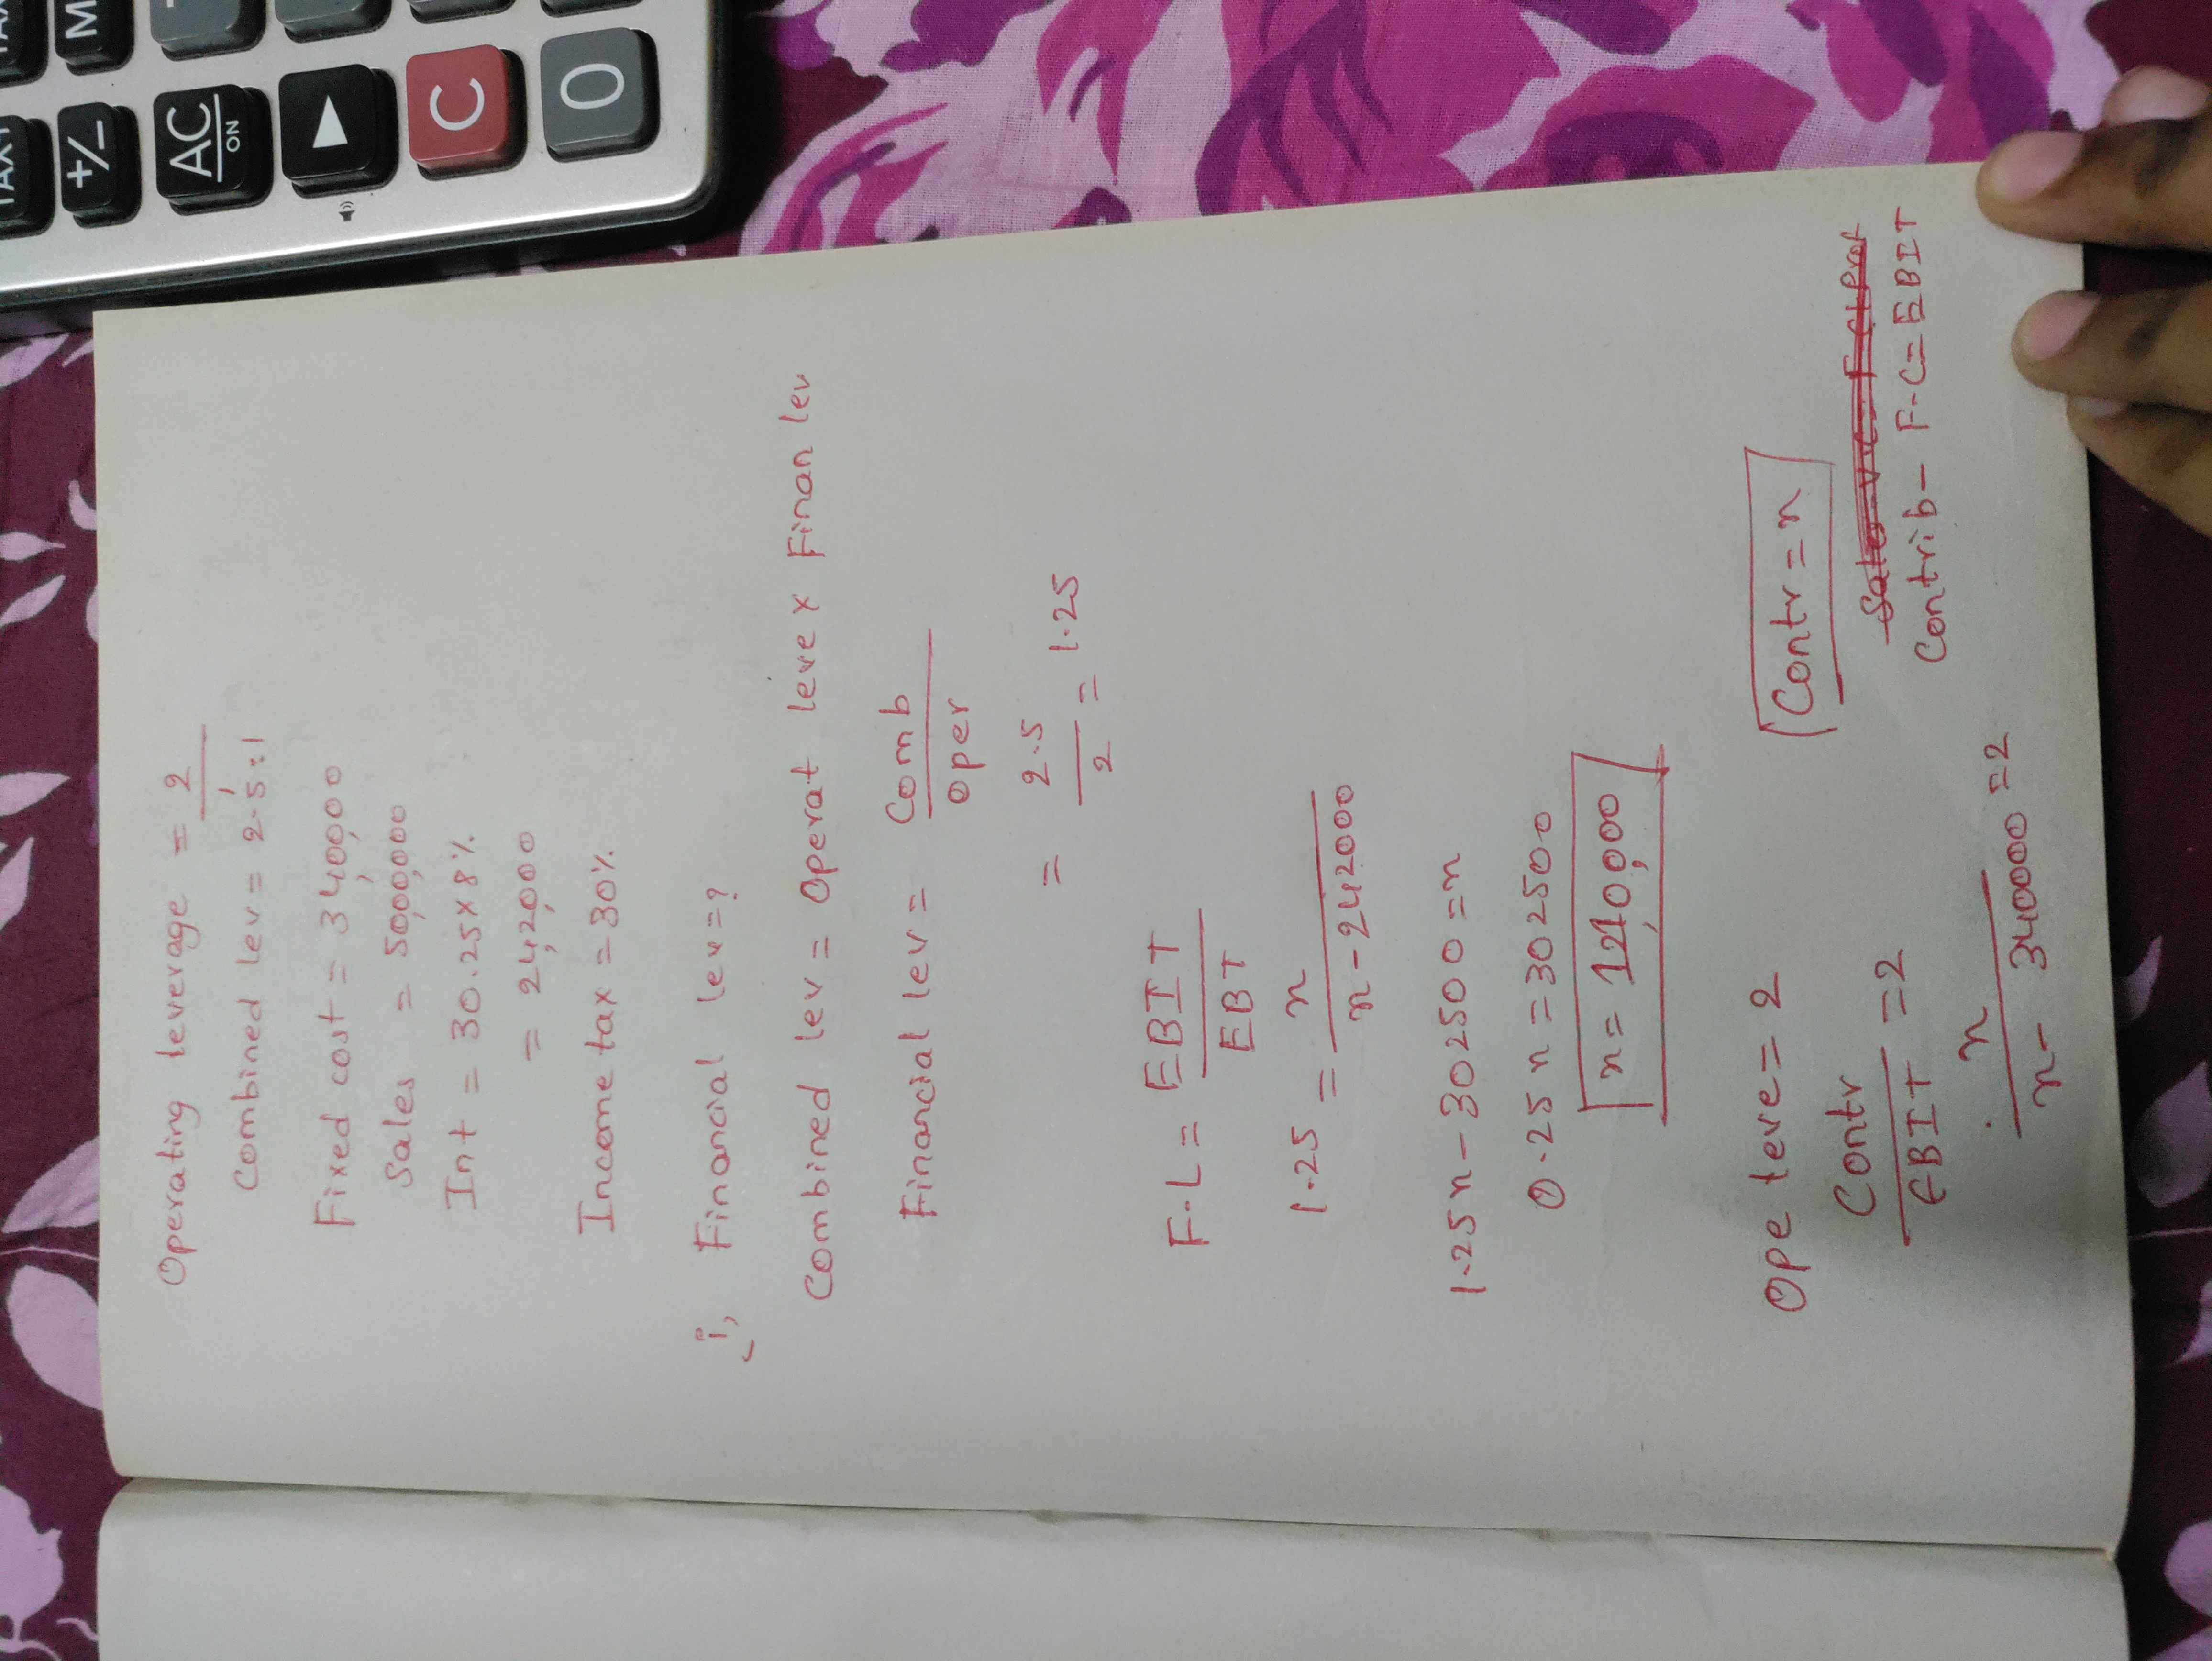 TAX+
+/-
AC
ON
▶
C
0
M
Operating leverage = 2/1
Combined lev = 2.5:1
Fixed cost = 3,40,000
Sales = 50,00,000
Int = 30.25 x 8%
= 2,42,000
Income tax = 30%
i, Financial lev = ?
Combined lev = Operat leve x Finan lev
Financial lev = Comb/Oper
= 2.5/2 = 1.25
F.L = EBIT/EBT
1.25 = n/n - 242000
1.25n - 302500 = n
0.25n = 302500
n = 12,10,000
Ope leve = 2
Contr = n
Contr/EBIT = 2
Contrib - F.C = EBIT
n/n - 340000 = 2